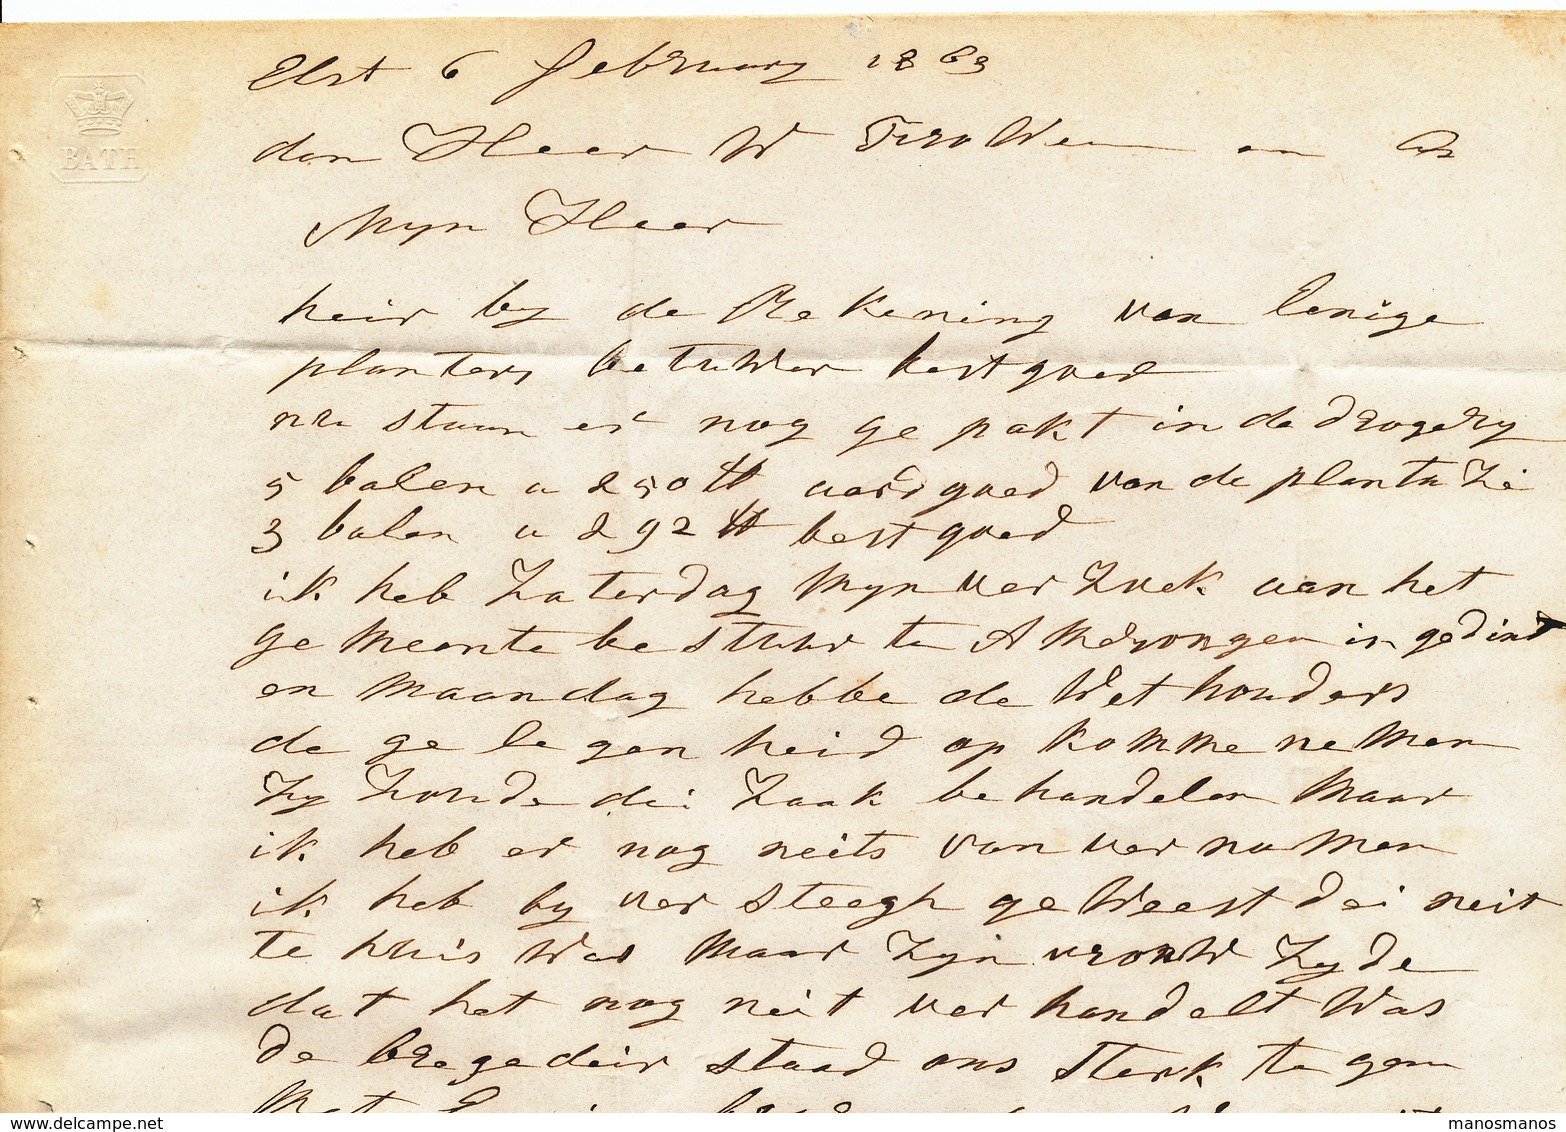 Elst 6 february 1863
BATH
den Heer W Frowein en Co
Myn Heer
heir by de Rekening van Eenige
planters betuwer bestgoed
nu staan er nog ge pakt in de drogery
5 balen a 250 ℔ aardgoed van de plantazie
3 balen a 292 ℔ bestgoed
ik heb Zaterdag Myn ver Zoek aan het
ge meente be stuur te Amerongen in gedint
en Maandag hebbe de Wet houders
de ge le gen heid op komme nemen
Zy Zoude dei Zaak be handelen Maar
ik heb er nog neits van ver nomen
ik heb by ver Steegh ge Weest dei neit
te huis Was Maar Zyn vrouw Zyde
dat het nog neit ver handelt Was
de bregedeir staad ons Sterk te gen
Met
delcampe.net
manosmanos